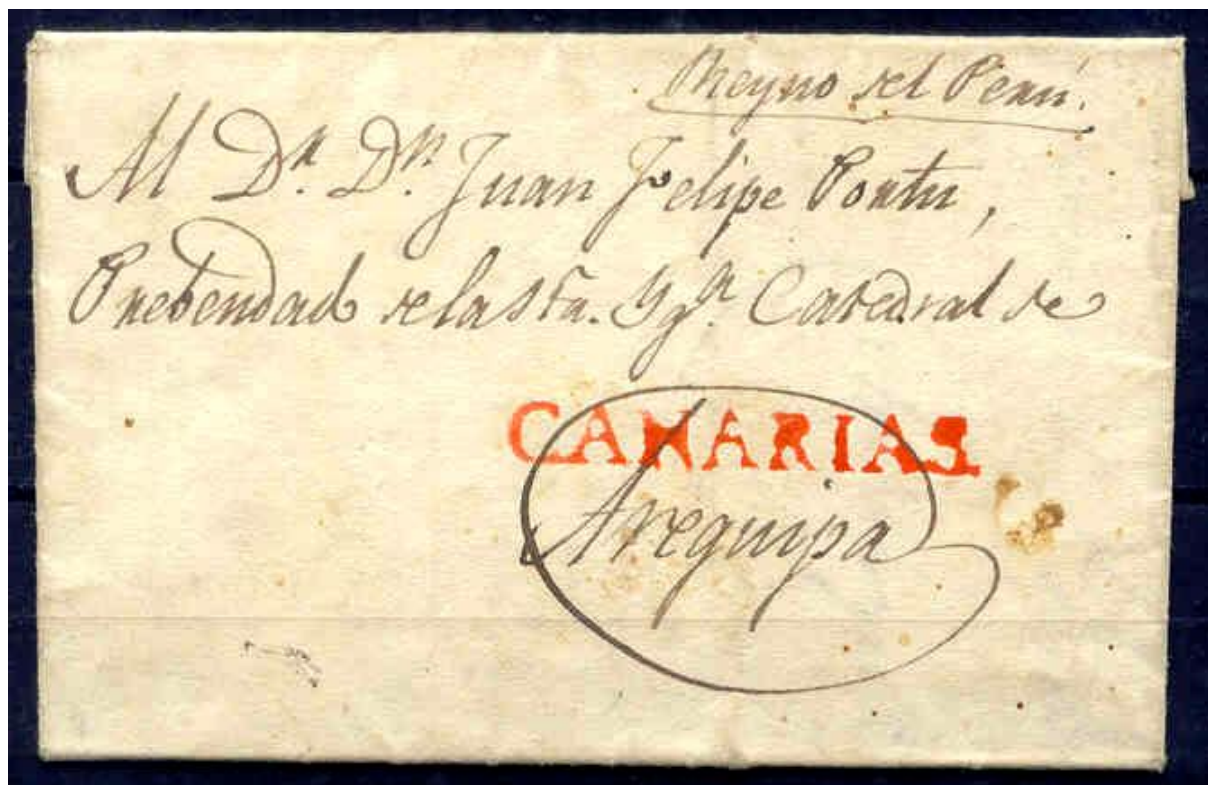 Reyno del Perú.
Al Dr. Dn. Juan Felipe Portu,
Prebendado de la Sta. Ygª. Catedral de
CANARIAS
Arequipa